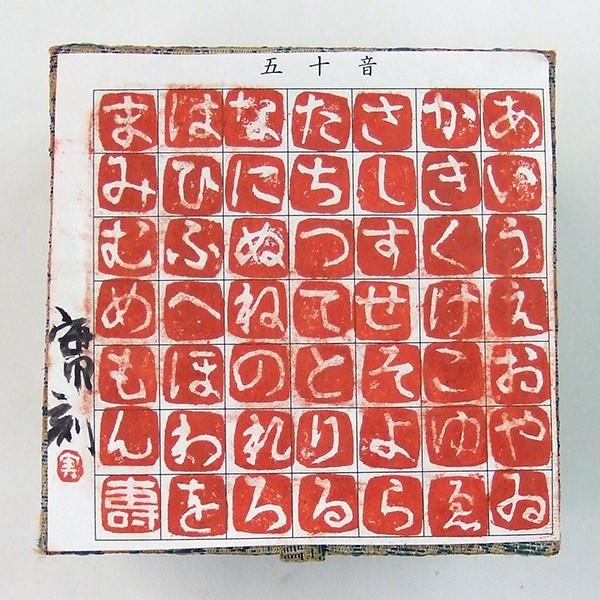 五十音
あいうえおやゐ
かきくけこゆゑ
さしすせそよら
たちつてとりる
なにぬねのれろ
はひふへほわを
まみむめもん壽
刻